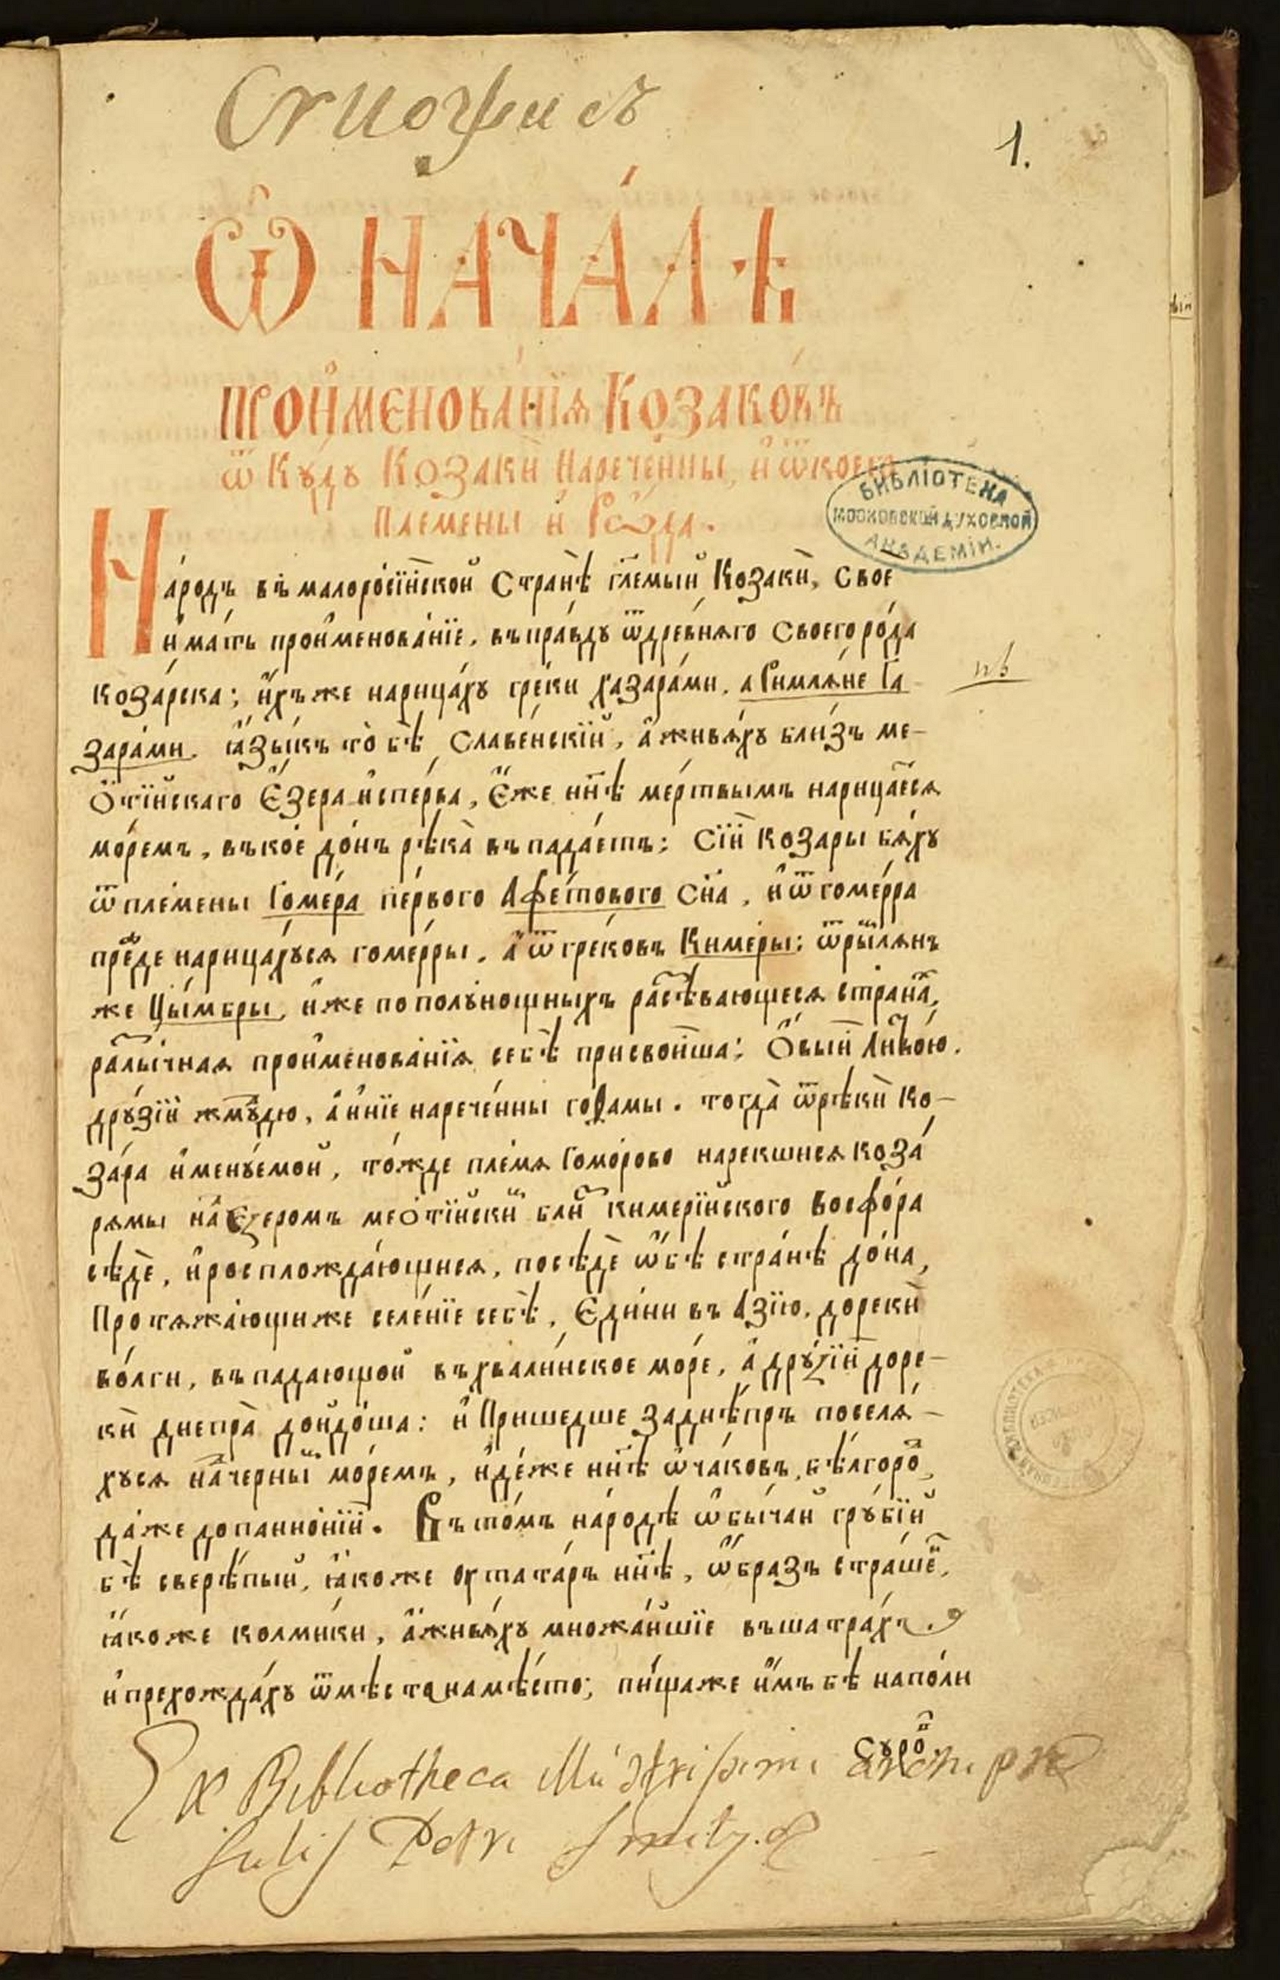 1.
Ѿ НАЧА́ЛѢ
ПРОИ҆МЕНОВА́НЇѦ КОЗАКО́ВЪ
Ѿ Кꙋ́дꙋ Козаки̑ Нарече́нны, и҆ ѿкоего
Племены и҆ Рѡ́да.
БИБЛІОТЕКА
МОСКОВСКОЙ ДУХОВНОЙ
АКАДЕМІИ.
На́родъ въ малоросїи́нской Стра́нѣ гл҃емый Козаки̑, Свое
и҆ма́ть прои҆менова́нїе, въпра́вдꙋ ѿдре́внѧго Своего ро́да
коза́рска; и҆́хъже нарица́хꙋ гре́ки хазара́ми, а Римлѧ́не Га
зара́ми. ꙗ҆зы́къ то̀ бѣ̀ Славе́нскїй, а҆ живѧ́хꙋ бли́зъ ме-
ѻ҆ті́йскаго Е҆́зера и҆спе́рва, Е҆́же нн҃ѣ ме́ртвымъ нарица́есѧ
мо́ремъ, въкое́ до́нъ рѣка̀ въпада́етъ; Сїи̑ козары бѧ́хꙋ
ѿ пле́мены Гоме́ра пе́рвого Афе́тового Сн҃а, и҆ ѿ гоме́рра
пре́де нарица́хꙋсѧ гоме́рры, а҆ ѿ гре́ковъ Кимеры; ѿ ры́млѧнъ
же Цы́мбры, и҆́же по полꙋ́нощныхъ расѣва́ющесѧ стра́на,
разлы́чная прои҆менова́нїѧ себѣ̀ присвои́ша; Ѻ҆вый Литво́ю.
дрꙋ́зїи жмꙋ́дю, а҆ и҆нїе нарече́нны готамы. тогда̀ ѿрѣки̑ Ко-
за́ра и҆менꙋ́емой, то́жде пле́мѧ Гомо́рово нарекшисѧ коза́
рѧмы на́ езеромъ меѻтійски̑ бли́ кимерїйского Восфо́ра
сѣ́де, и҆росплождаю́щисѧ, посѣ́де ѻ҆́бѣ стра́нѣ до́на,
Протѧжа́ющиже селе́нїе себѣ̀, Еди́ни въ Азїю. дореки̑
во́лги, въпадающой въхвали́нское мо́ре, а҆ дрꙋ́зїи̑ доре-
ки̑ днепра̀ дойдо́ша: и҆ Пришедше заднѣ́пръ поселѧ-
хꙋсѧ на́ черны́ мо́ремъ, и҆де́же нн҃ѣ ѡ҆ча́ковъ, бѣлгоро,
да́же до панно́нїи. Въ то́мъ наро́дѣ ѡ҆бы́чай грꙋ́бїй
бѣ̀ сверѣ́пый, ꙗ҆коже ꙋ тата́ръ нн҃ѣ, ѡ҆́бразъ стра́ше,
ꙗ҆́коже колми́ки, а҆живѧ́хꙋ множа́йшїе въшатра́хъ,
и҆прехожда́хꙋ ѿмѣста намѣ́сто; пи́щаже и҆́мъ бѣ̀ напо́ли
Ex Bibliotheca Illustrissimi
Petri